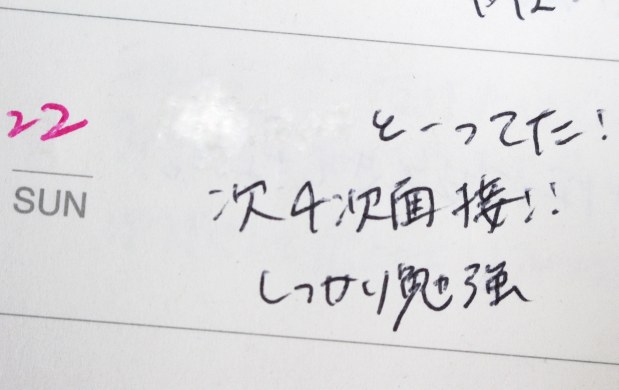 22
SUN
とーってた!
次4次面接!!
しっかり勉強